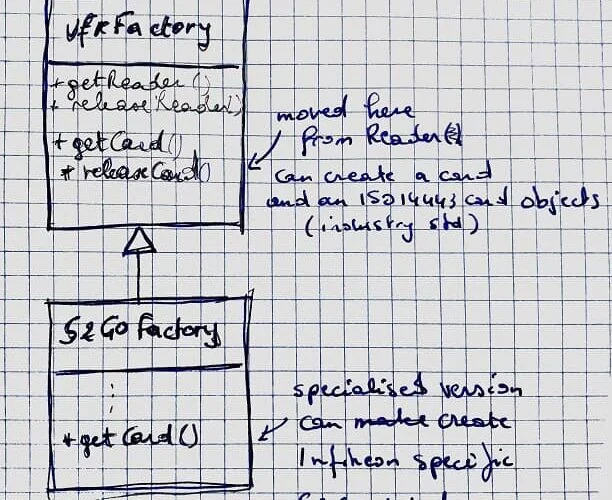 VfR Factory
+ getReader()
+ releaseReader()
+ getCard()
+ releaseCard()
moved here
from Reader
can create a card
and an ISO14443 card objects
(industry std)
S2Go Factory
+ getCard()
specialised version
can make create
Infineon specific